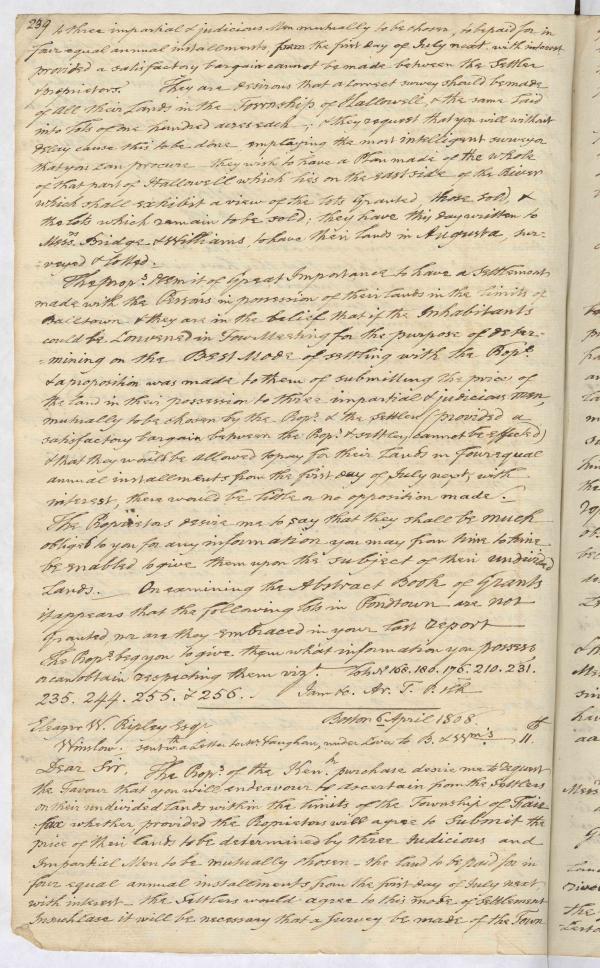 239
to three impartial & judicious Men mutually to be chosen, to be paid for in
four equal annual installments, from the first day of July next, with interest
provided a satisfactory bargain cannot be made between the Settler
& Proprietors. They are desirous that a correct survey should be made
of all their Lands in the Township of Hallowell, & the same laid
into lots of one hundred acres each; & they request that you will without
delay cause this to be done employing the most intelligent surveyor
that you can procure they wish to have a Plan made of the whole
of that part of Hallowell which lies on the east side of the River
which shall exhibit a view of the lots Granted, those sold, &
the lots which remain to be sold; they have this day written to
Messrs. Bridge & Williams, to have their lands in Augusta, sur-
-veyed & lotted.
The Propr.s deem it of Great Importance to have a settlement
made with the Persons in possession of their lands in the limits of
Balltown & they are in the belief that if the Inhabitants
could be Convened in Town Meeting for the purpose of deter-
-mining on the Best Mode of settling with the Propr.s
& a proposition was made to them of submitting the price of
the land in their possession to three impartial & judicious men,
mutually to be chosen by the Propr.s & the settler (provided a
satisfactory bargain between the Propr.s & settler, cannot be effected)
& that they would be allowed to pay for their Lands in four equal
annual installments from the first day of July next, with
interest, there would be little or no opposition made.
The Proprietors desire me to say that they shall be much
obliged to you for any information you may from time to time
be enabled to give them upon the subject of their undivided
Lands. On examining the Abstract Book of Grants
it appears that the following lots in Pondtown are not
Granted nor are they embraced in your last report
The Propr.s beg you to give them what information you possess
or can obtain respecting them viz.t Lots No. 168. 186. 176. 210. 231.
235. 244. 255. & 256. I am &c. Ar. T.
Boston 6 April 1808
Eleazer W. Ripley Esqr
Winslow. sent wth a Letter to Mr Vaughan, under Cover to B. & Wms 11th
Dear Sir. The Propr.s of the Ken.k purchase desire me to request
the favour that you will endeavour to ascertain from the Settlers
on their undivided lands within the limits of the Township of Fair-
-fax whether provided the Proprietors will agree to Submit the
price of their lands to be determined by three Judicious and
Impartial Men to be mutually chosen - the land to be paid for in
four equal annual installments from the first day of July next
with interest - the Settlers would agree to this mode of settlement
In such case it will be necessary that a survey be made of the Town